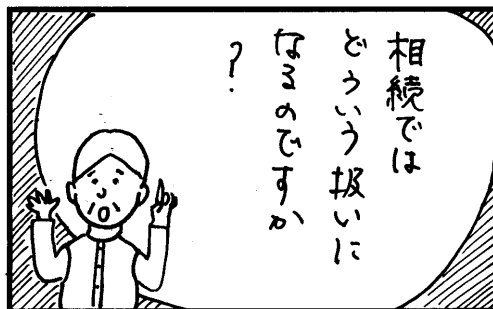 相続では
どういう扱いに
なるのですか
？